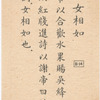 女相如
以合歡水果賜吳絳
紅牋進詩以謝帝曰絳
女相如也